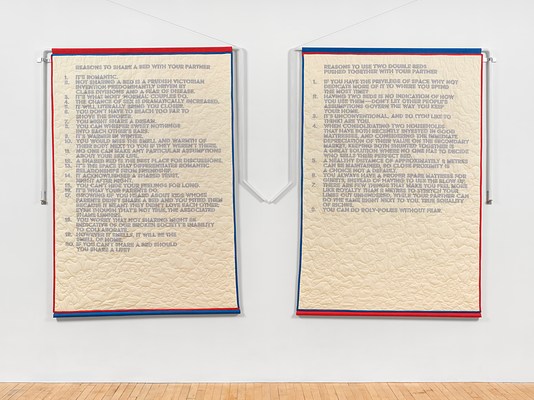 REASONS TO SHARE A BED WITH YOUR PARTNER
1. IT'S ROMANTIC.
2. NOT SHARING A BED IS A PRUDISH VICTORIAN
INVENTION PREDOMINANTLY DRIVEN BY
CLASS DIVISIONS AND A FEAR OF DISEASE.
3. IT'S WHAT MOST NORMAL COUPLES DO.
4. THE CHANCE OF SEX IS DRAMATICALLY INCREASED.
5. IT WILL LITERALLY BRING YOU CLOSER.
6. YOU DON'T HAVE TO REACH TOO FAR TO
SHOVE THE SNORER.
7. YOU MIGHT SHARE A DREAM.
8. YOU CAN WHISPER SWEET NOTHINGS
INTO EACH OTHER'S EARS.
9. IT'S WARMER IN WINTER.
10. YOU WOULD MISS THE SMELL AND WARMTH OF
THEIR BODY NEXT TO YOU IF THEY WEREN'T THERE.
11. NO ONE CAN MAKE ANY PARTICULAR ASSUMPTIONS
ABOUT YOUR SEX LIFE.
12. A SHARED BED IS THE BEST PLACE FOR DISCUSSIONS.
13. IT'S THE SPACE THAT DIFFERENTIATES ROMANTIC
RELATIONSHIPS FROM FRIENDSHIP.
14. IT ACKNOWLEDGES A SHARED SPIRIT,
NIGHT AFTER NIGHT.
15. YOU CAN'T HIDE YOUR FEELINGS FOR LONG.
16. IT'S WHAT YOUR PARENTS DO.
17. GROWING UP YOU HEARD ABOUT KIDS WHOSE
PARENTS DIDN'T SHARE A BED AND YOU PITIED THEM
BECAUSE IT MEANT THEY DIDN'T LOVE EACH OTHER.
EVEN THOUGH THAT'S NOT TRUE, THE ASSOCIATED
SHAME LINGERS.
18. YOU WORRY THAT NOT SHARING MIGHT BE
INDICATIVE OF OUR BROKEN SOCIETY'S INABILITY
TO COLLABORATE.
19. HOWEVER IT SMELLS, IT WILL BE THE
SMELL OF HOME.
20. IF YOU CAN'T SHARE A BED SHOULD
YOU SHARE A LIFE?
REASONS TO USE TWO DOUBLE BEDS
PUSHED TOGETHER WITH YOUR PARTNER
I. IF YOU HAVE THE PRIVILEGE OF SPACE WHY NOT
DEDICATE MORE OF IT TO WHERE YOU SPEND
THE MOST TIME?
II. HAVING TWO BEDS IS NO INDICATION OF HOW
YOU USE THEM—DON'T LET OTHER PEOPLE'S
ASSUMPTIONS GOVERN THE WAY YOU KEEP
YOUR HOME.
3. IT'S UNCONVENTIONAL, AND SO
THINK ARE YOU.
4. WHEN CONSOLIDATING TWO HOUSEHOLDS
THAT HAVE BOTH RECENTLY INVESTED IN GOOD
MATTRESSES, AND CONSIDERING THE IMMEDIATE
DEPRECIATION OF THEIR VALUE ON THE SECONDARY
MARKET, KEEPING BOTH SHUNTED TOGETHER IS
A GREAT SOLUTION WHERE NO ONE HAS TO DECIDE
WHO KEEPS THEIR PERFECT BED.
5. A HEALTHY DISTANCE OF APPROXIMATELY
CAN BE MAINTAINED, SO CLOSE PROXIMITY IS
A CHOICE NOT A DEFAULT.
6. YOU ALWAYS HAVE A PROPER SPARE MATTRESS FOR
GUESTS, INSTEAD OF HAVING TO
7. THERE ARE FEW THINGS THAT MAKE YOU FEEL MORE
LIKE ROYALTY THAN 3 METRES TO STRETCH YOUR
LIMBS OUT UNHINDERED, WHILE YOUR PARTNER CAN
DO THE SAME RIGHT NEXT TO YOU. TRUE EQUALITY
8. YOU CAN DO ROLY-POLIES WITHOUT FEAR.